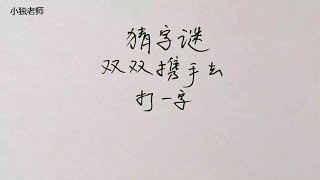 小独老师
猜字谜
双双携手去
打一字